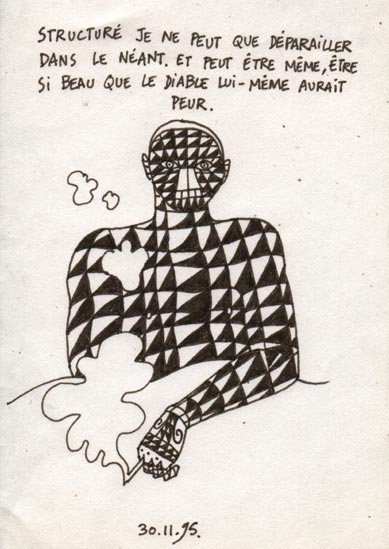 STRUCTURÉ JE NE PEUT QUE DÉPARAILLER
DANS LE NÉANT. ET PEUT ÊTRE MÊME, ÊTRE
SI BEAU QUE LE DIABLE LUI-MÊME AURAIT
PEUR.
30.11.95.